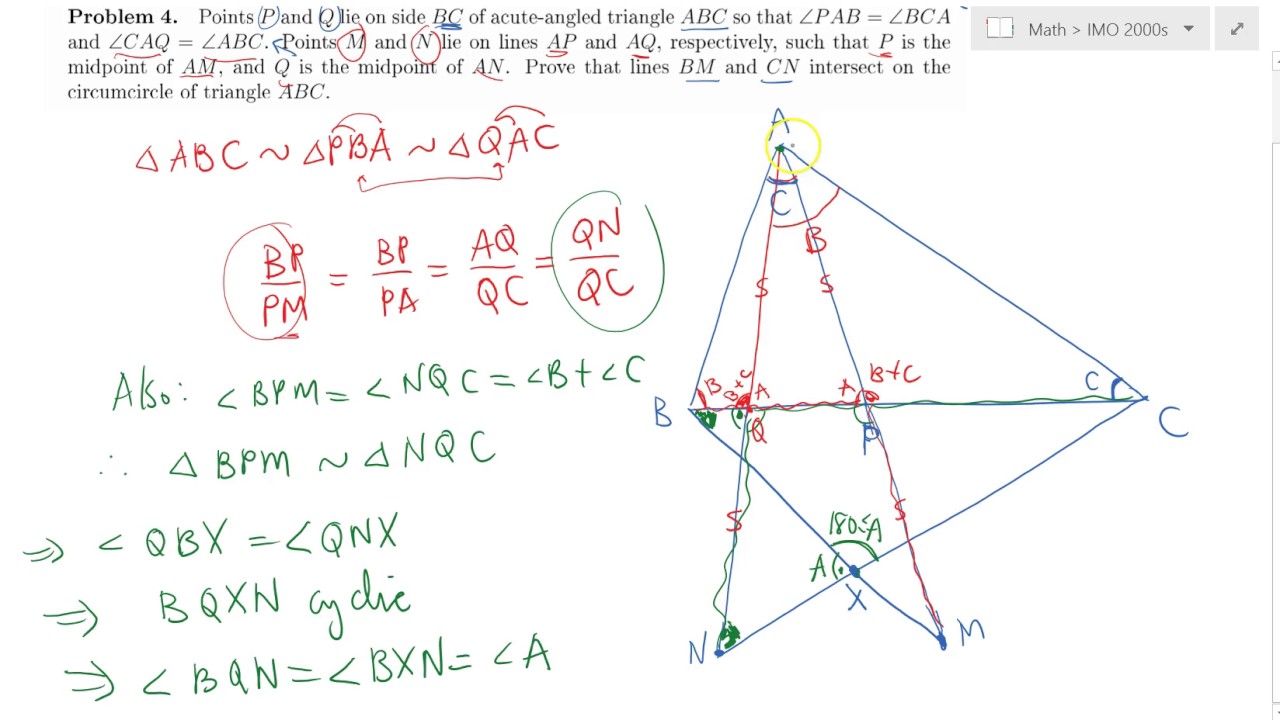 Problem 4. Points P and Q lie on side BC of acute-angled triangle ABC so that ∠PAB = ∠BCA
and ∠CAQ = ∠ABC. Points M and N lie on lines AP and AQ, respectively, such that P is the
midpoint of AM, and Q is the midpoint of AN. Prove that lines BM and CN intersect on the
circumcircle of triangle ABC.
Math > IMO 2000s
△ABC ~ △PBA ~ △QAC
BP/PM = BP/PA = AQ/QC = QN/QC
Also: ∠BPM = ∠NQC = ∠B+∠C
∴ △BPM ~ △NQC
⇒ ∠QBX = ∠QNX
⇒ BQXN cyclic
⇒ ∠BQN = ∠BXN = ∠A
A
C
B
S S
B B+C A A B+C C
B Q P C
S S
180-A
A
X
N M